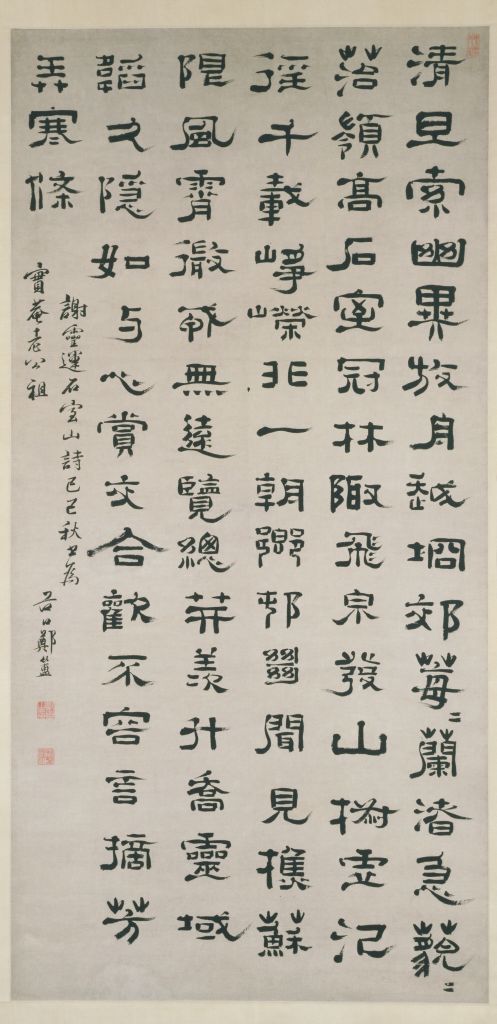 清旦索幽異放舟越坰郊莓〻蘭渚急藐〻
苔嶺高石室冠林陬飛泉發山椒虛汜
徑千載崢嶸非一朝鄉邨𢇍聞見樵蘇
限風霄微戎無遠覽總笄羨升喬靈域
韜久隱如与心賞交合歡不容言摘芳
弄寒條
謝靈運石室山詩己巳秋為
實菴老公祖
谷口鄭簠